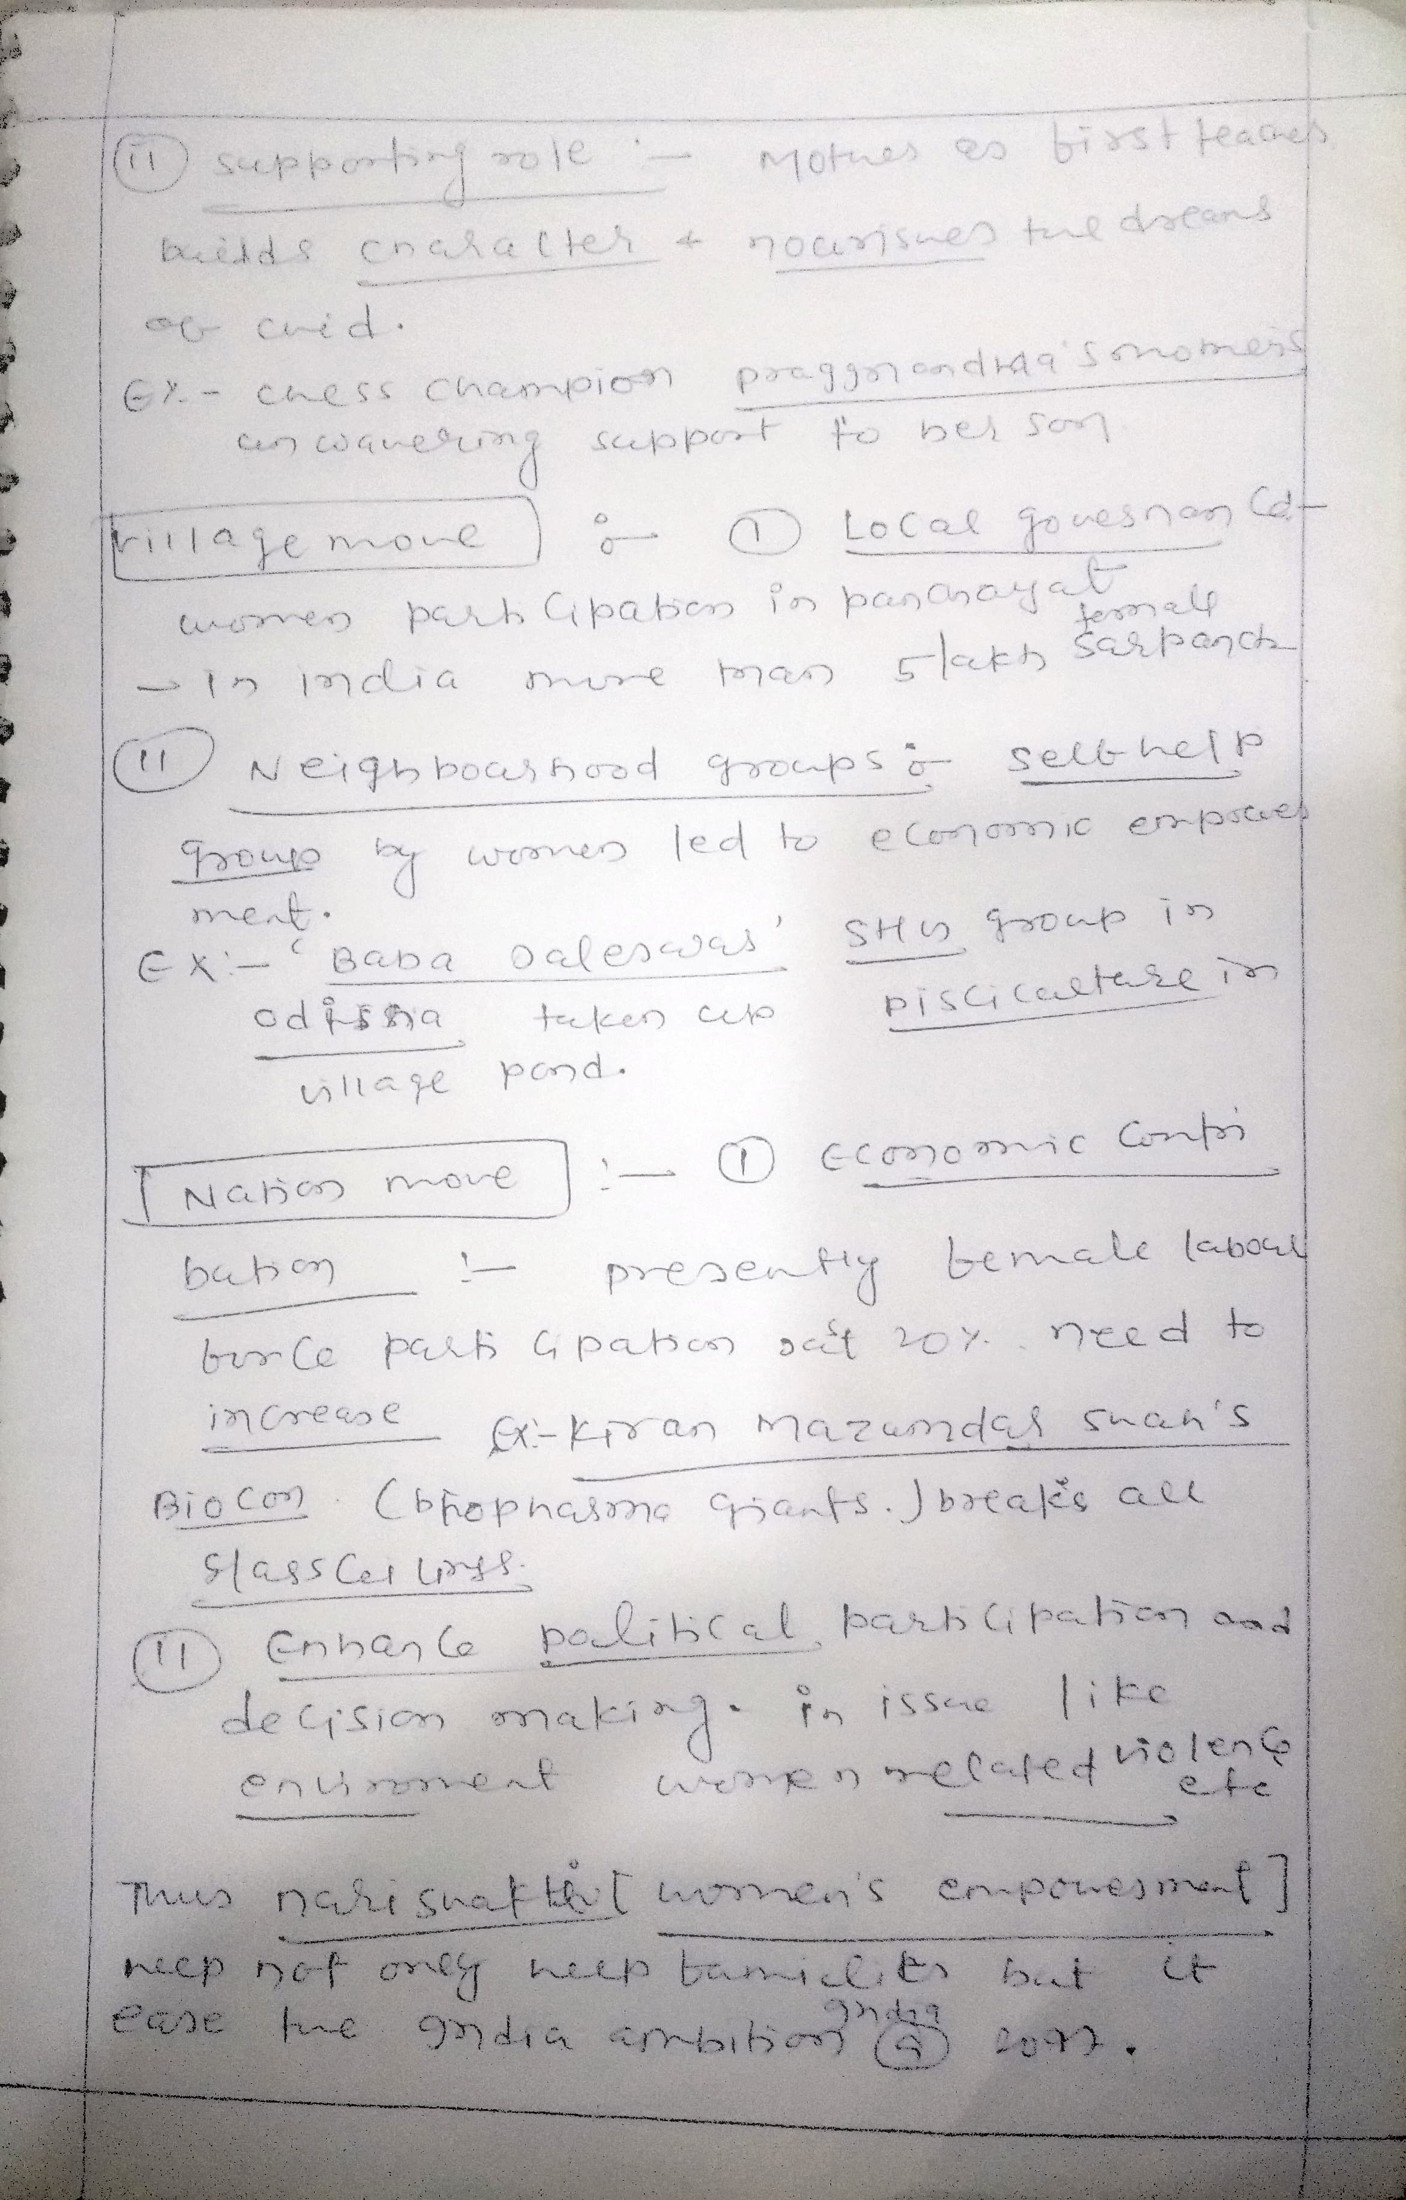 (ii) supporting role :- Mother as first teacher
builds character & nourishes the dreams
of child.
Ex.- chess champion praggnandhaa's mother's
unwavering support to her son
village move :- (1) Local governance-
women participation in panchayat
→ In india more than 5 lakh female sarpanch
(11) Neighbourhood groups :- self help
group by women led to economic empower
ment.
Ex:- 'Baba Daleswar' SHG group in
odisha taken up pisciculture in
village pond.
Nation move :- (1) Economic contri
bution :- presently female labour
force participation rat 20%. need to
increase Ex:- Kiran Mazumdar Shah's
Biocon (biopharma giants.) breaks all
glass ceilings.
(11) Enhance political participation and
decision making. in issue like
environment women related violence etc
Thus nari shakthi [women's empowerment]
help not only help families but it
ease the India ambition India @ 2047.